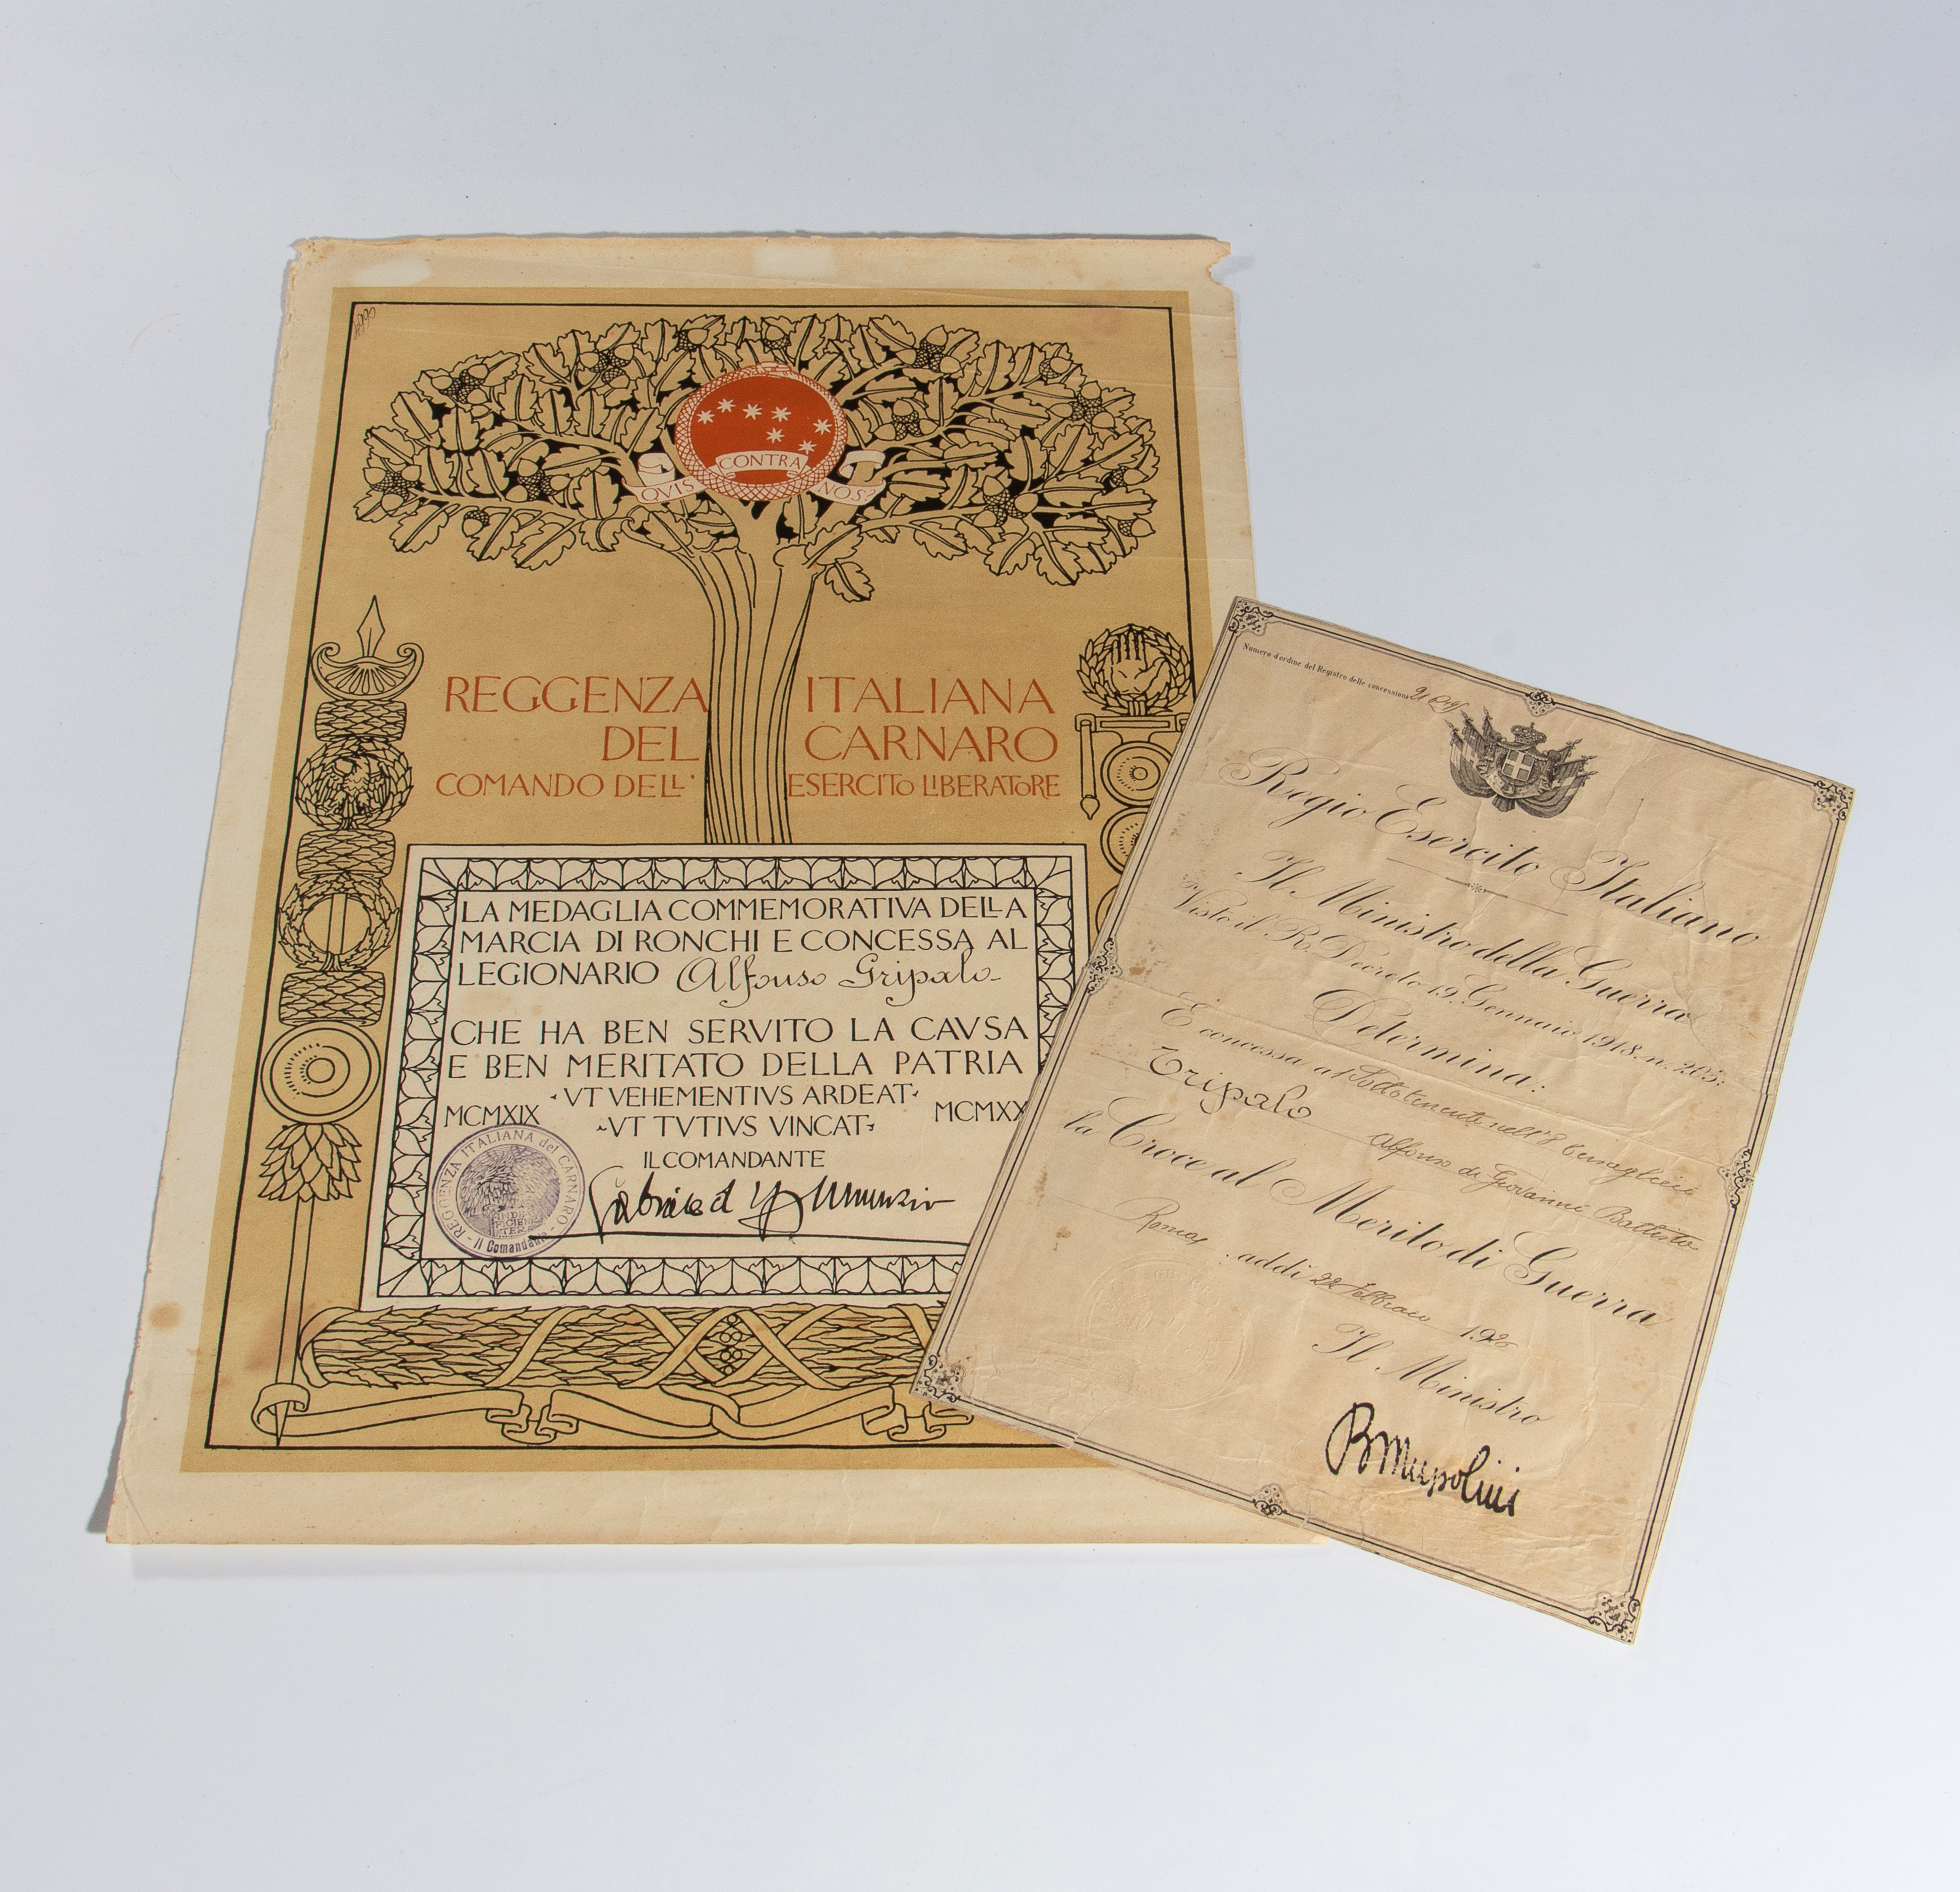 QVIS CONTRA NOS?
REGGENZA ITALIANA
DEL CARNARO
COMANDO DELL' ESERCITO LIBERATORE
LA MEDAGLIA COMMEMORATIVA DELLA
MARCIA DI RONCHI E CONCESSA AL
LEGIONARIO Alfonso Gripalo
CHE HA BEN SERVITO LA CAVSA
E BEN MERITATO DELLA PATRIA
·VT VEHEMENTIVS ARDEAT·
MCMXIX MCMXX
~VT TVTIVS VINCAT~
IL COMANDANTE
Gabriele d'Annunzio
REGGENZA ITALIANA del CARNARO - Il Comandante
Numero d'ordine del Registro delle concessioni
Regio Esercito Italiano
Il Ministro della Guerra
Visto il R. Decreto 19 Gennaio 1918. n. 205:
Determina:
È concessa al Sottotenente nell' 8 Bersaglieri
Tripalo Alfonso di Giovanni Battista
la Croce al Merito di Guerra
Roma, addì 22 Febbraio 1926
Il Ministro
BMussolini